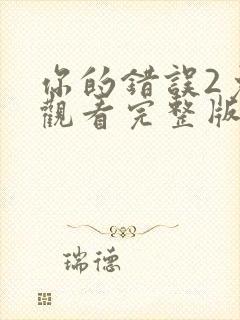 你的錯誤2
觀看完整版
瑞德